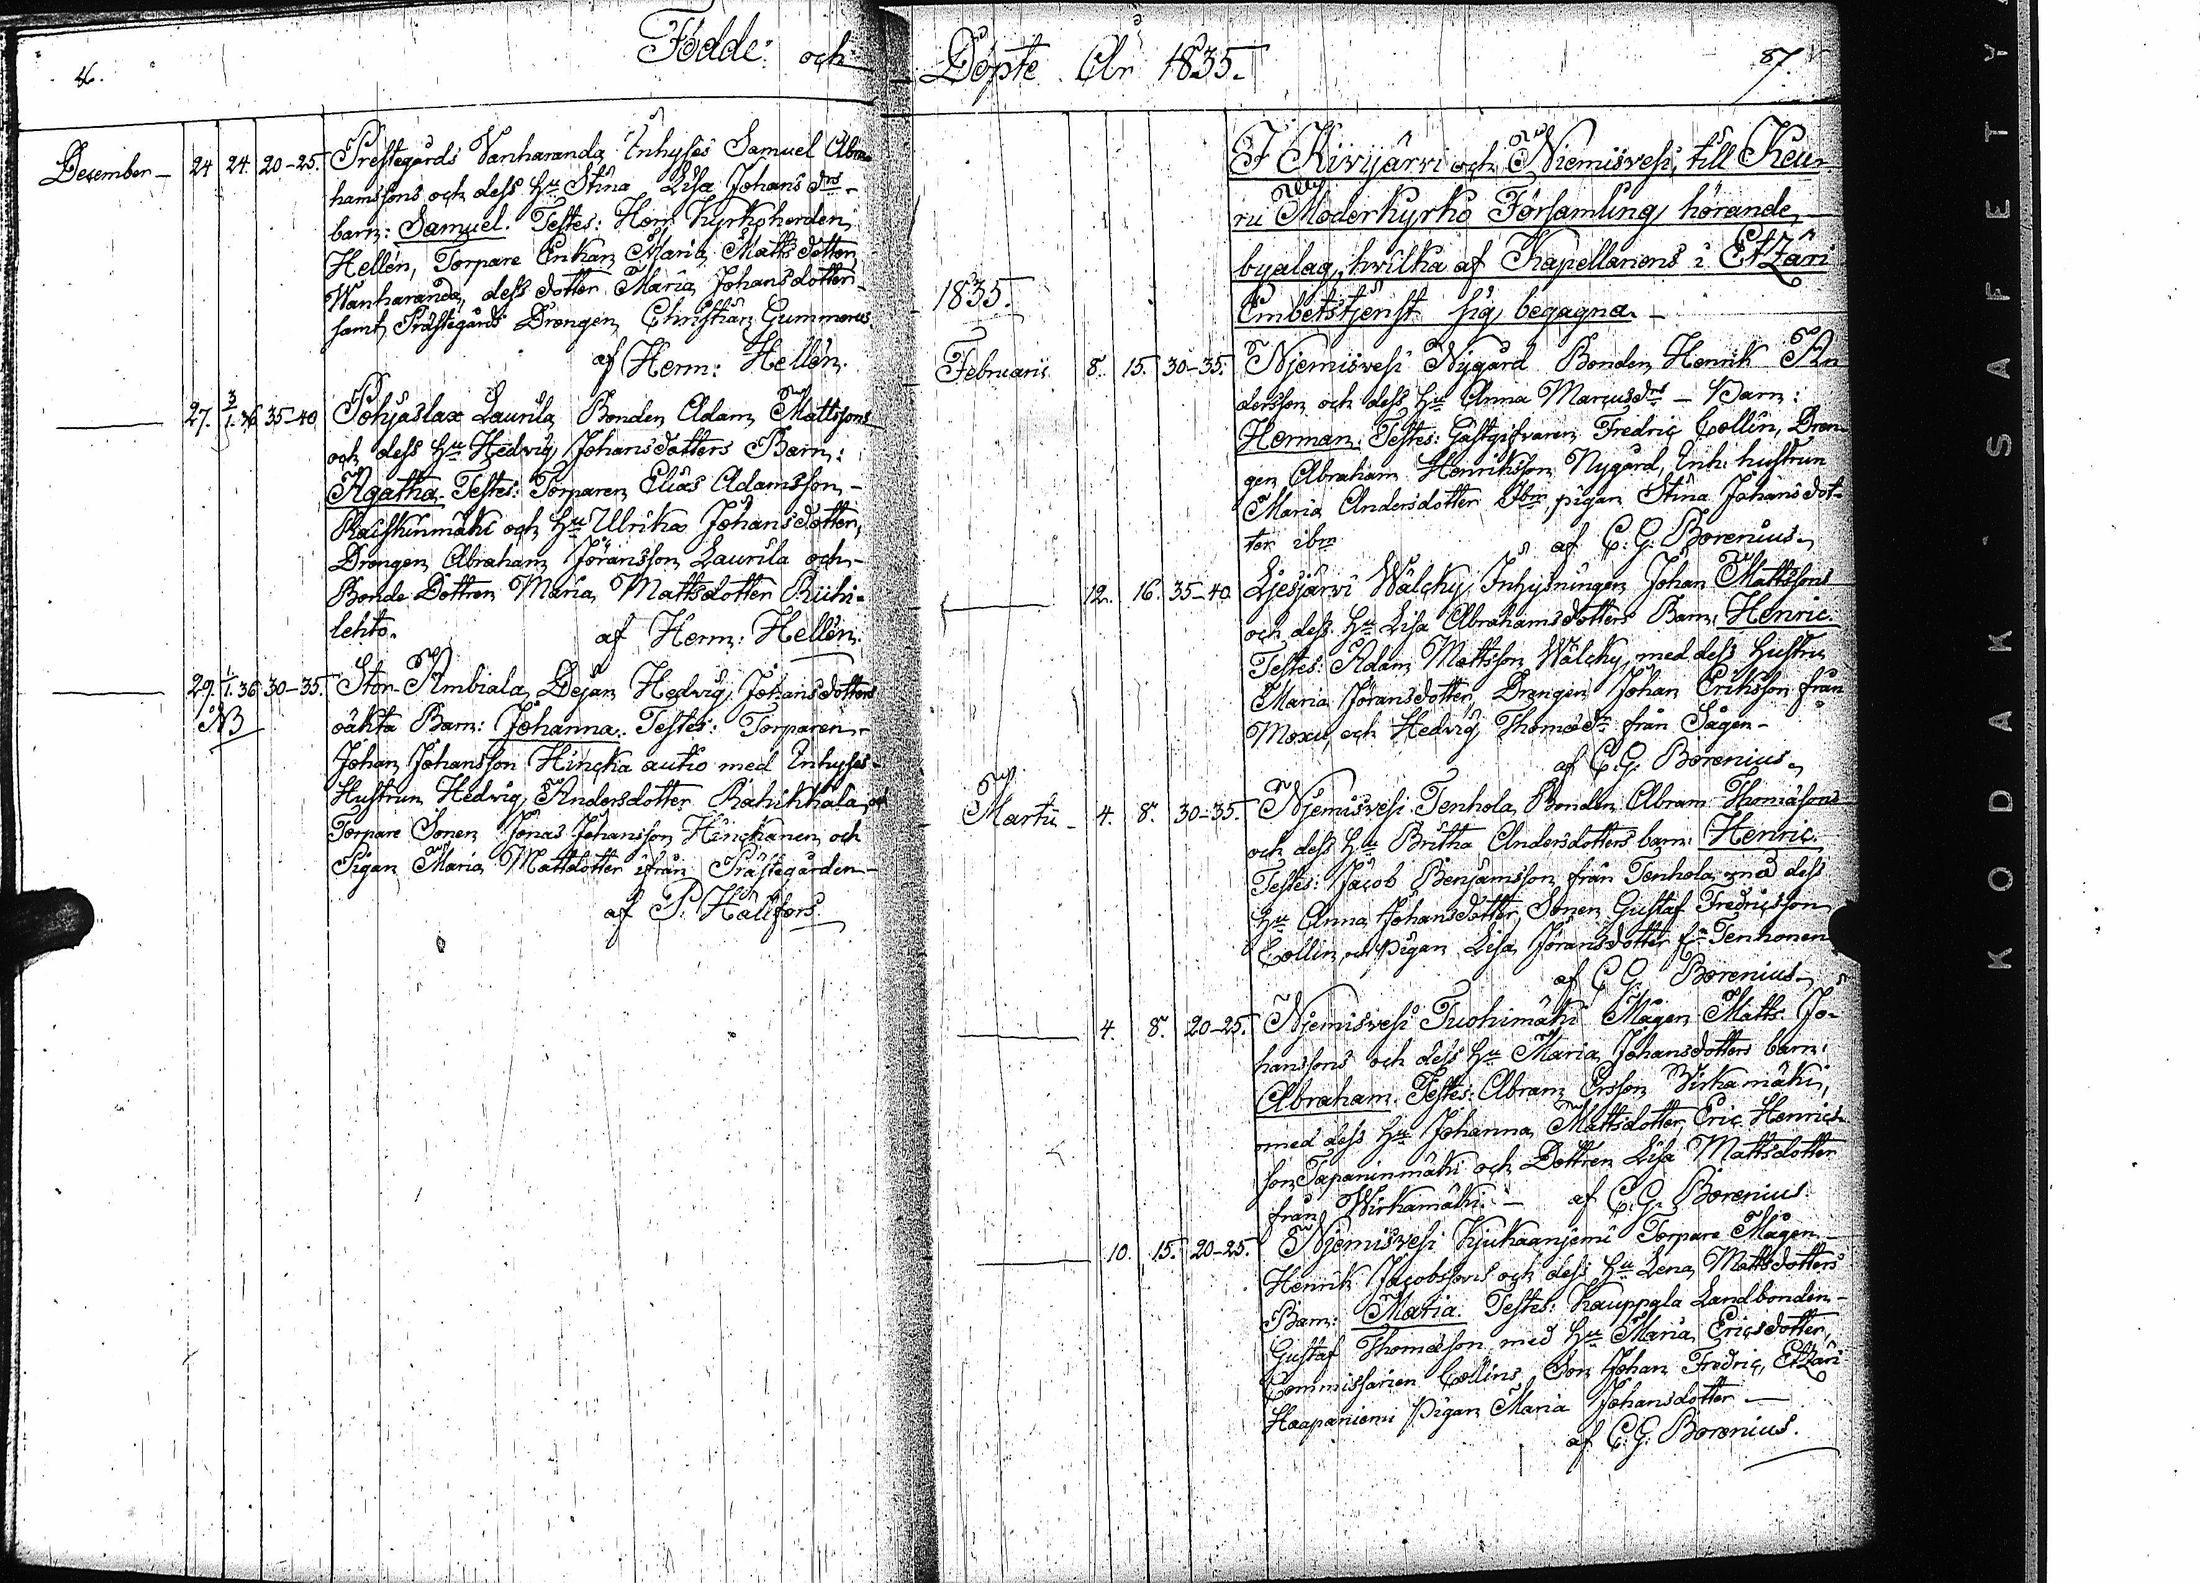 86.
Födde och
December — 24 24. 20-25. Prestegårds Vanharanda Inhyses Samuel Abra-
hamssons och dess Hu Stina Lisa Johans drs
barn: Samuel. Testes: Herr Kyrkoherden
Hellén, Torpare Enkan Maria Matts dotter
Wanharanda, dess dotter Maria Johansdotter
samt Prästegårds Drengen Christian Gummerus
af Herm: Hellén.
— 27. 3/1.36 35-40 Pohjaslax Laurila Bonden Adam Mattssons
och dess Hu Hedvig Johansdotters Barn:
Agatha. Testes: Torparen Elias Adamsson
Raiskinmäki och Hu Ulrika Johansdotter,
Drengen Abraham Jöransson Laurila och
Bonde Dottren Maria Mattsdotter Riihi-
lehto. af Herm: Hellén.
— 29. 1/1.36 30-35. Stor-Ambiala Dejan Hedvig Johansdotters
NB
oäkta Barn: Johanna. Testes: Torparen
Johan Johansson Hincka autio med Inhyses
Hustrun Hedvig Andersdotter Rahikkala, och
Torpare Sonen Jonas Johansson Hinckanen och
Pigan Maria Mattsdotter ifrån Prästegården
af P. Hällfors.
Döpte År 1835.
87.
I Kivijärvi och Niemisvesi, till Keu-
ru Moderkyrko Församling hörande
byalag, hvilka af Kapellanens i Etzäri
1835.
Embetstjenst sig begagna. —
Februarii 8. 15. 30-35. Njemisvesi Nygård Bonden Henrik An
dersson och dess Hu Anna Marcusdrs — Barn:
Herman. Testes: Gästgifvaren Fredric Collin, Dren-
gen Abraham Henriksson Nygård, Inh: hustrun
Maria Andersdotter Ibm pigan Stina Johansdot-
ter ibm af C. G. Borenius.
— 12. 16. 35-40. Ljesjärvi Wälcky Inhysningen Johan Mattssons
och dess Hu Lisa Abrahamsdotters Barn: Henric.
Testes: Adam Mattsson Wälcky med dess Hustru
Maria Jöransdotter, Drengen Johan Eriksson från
Moxu, och Hedvig Thomædr från Sågen —
af C. G. Borenius.
Martii — 4. 8. 30-35. Njemisvesi Tenhola Bonden Abram Thomassons
och dess Hu Britha Andersdotters barn: Henric.
Testes: Jacob Benjamsson från Tenhola med dess
Hu Anna Johansdotter, Sonen Gustaf Fredricsson
Collin och pigan Lisa Jöransdotter fn Tenhonen
af C. G. Borenius.
— 4. 8. 20-25. Njemisvesi Tuohimäki Mågen Matts Jo-
hanssons och dess Hu Maria Johansdotters barn:
Abraham. Testes: Abram Ersson Wirkamäki,
med dess Hu Johanna Mattsdotter, Eric Henrics-
son Tapaninmäki och Dottren Lisa Mattsdotter
från Wirkamäki. — af C. G. Borenius.
— 10. 15. 20-25. Njemisvesi Kjukaanjemi Torpare Mågen
Henrik Jacobssons och dess Hu Lena Mattsdotters
Barn: Maria. Testes: Kauppala Landbonden
Gustaf Thomasson med Hu Maria Ericsdotter,
Commissarien Collins Son Johan Fredric, Etzäri
Haapaniemi pigan Maria Johansdotter —
af C. G. Borenius.
KODAK · SAFETY